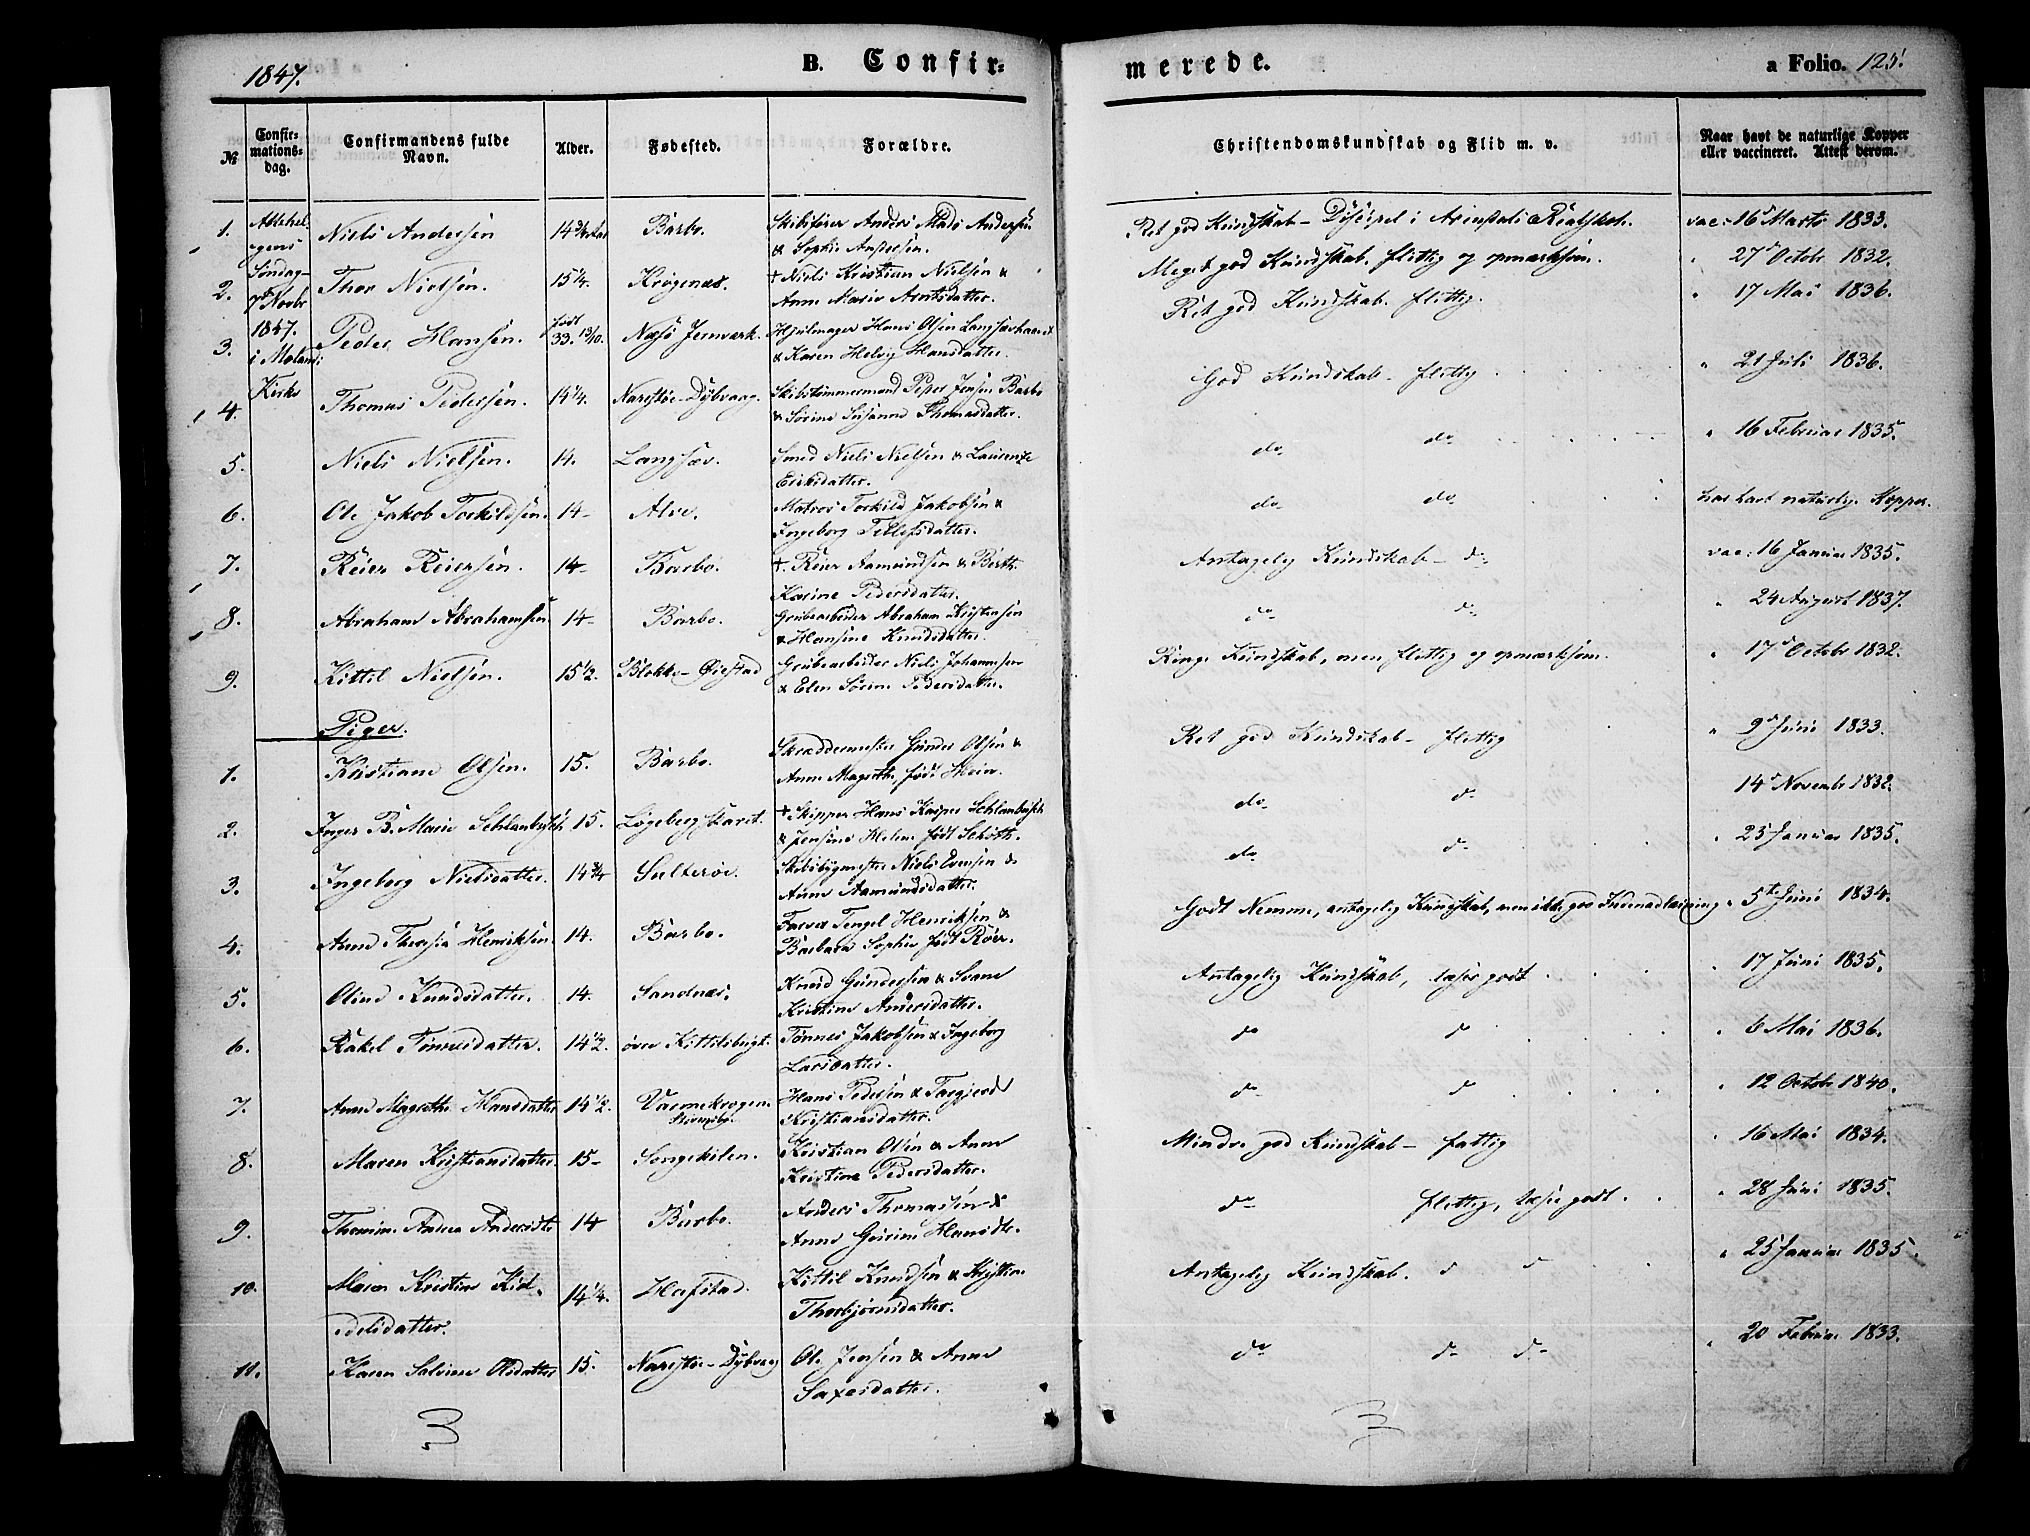 1847.
B. Confirmerede.
a Folio. 125.
№
Confirmationsdag.
Confirmandens fulde Navn.
Alder.
Fødested.
Forældre.
Christendomskundskab og Flid m. v.
Naar havt de naturlige Kopper eller vaccineret. Attest derom.
Søndag
1847.
Kirke
1. Niels Andersen 14 3/4 Barbo. Skibsfører Anders Mads Andersen
& Sophie
Ret god Kundskab – Discipel i Arendals Realskole. vac: 16 Marts 1833.
2. Thor Nielsen. 15 1/4. Krogenes. † Niels Kristian Nielsen &
Anne Marie Arntsdatter.
Meget god Kundskab, flittig og opmærksom. 27 Octobr 1832.
3. Peder Hansen. født 33. 13/10. Næs Jernværk. Hjulmager Hans Olsen
& Karen Helvig Hansdatter.
Ret god Kundskab. flittig. 17 Mai 1836.
4. Thomas Pedersen. 14 1/4. Narestøe – Dybvaag. Skibstømmermand Peder Jensen Barbo
& Sørine Susanne Thomasdatter.
God Kundskab – flittig 21 Juli 1836.
5. Niels Nielsen. 14. Langsæv. Smed Niels Nielsen & Laurentze
Eriksdatter.
do do 16 Februar 1835.
6. Ole Jakob Torkildsen. 14 – Alve. Matros Torkild Jakobsen &
Ingeborg Tellefsdatter.
do do har havt naturlig. Kopper.
7. Reier Reiersen. 14 – Barbo. †. Reier Aamundsen & Berthe
Karine Pedersdatter.
Antagelig Kundskab – do vac: 16 Januar 1835.
8. Abraham Abrahamsen 14 – Barbo. Grubearbeider Abraham Kristensen
& Hansine Knudsdatter.
do do 24 August 1837.
9. Kittil Nielsen. 15 1/2. Blokke – Øiestad Grubearbeider Niels Johannesen
& Elen Sørine Pedersdatter.
Ringe Kundskab, men flittig og opmærksom. 17 Octobr 1832.
Piger.
1. Kristiane Olsen. 15. Barbo. Skræddermester Gunder Olsen &
Anne Magrethe, født
Ret god Kundskab – flittig 9 Juni 1833.
2. Inger B. Marie 15. Løgebergskaret. † Skipper Hans Kasper
& Jensine Helene født Schøth.
do do 14 Novembr 1832.
3. Ingeborg Nielsdatter. 14 3/4 Skibsbygmester Niels Evensen &
Anne Aamundsdatter.
do do 25 Januar 1835.
4. Anne Theresia Henriksen. 14. Barbo. Farver Tengel Henriksen &
Barbara Sophie født Røer.
Godt Nemme, antagelig Kundskab, men ikke god Indenadlæsning 5te Juni 1834.
5. Oline Knudsdatter. 14. Sandnæs. Knud Gundersen & Svane
Kristine Andersdatter.
Antagelig Kundskab, læser godt 17 Juni 1835.
6. Rakel Tønnesdatter. 14 1/2. øvre Kittilsbugt. Tønnes Jakobsen & Ingeborg
Larsdatter.
do do 6 Mai 1836.
7. Anne Magrethe Hansdatter 14 1/2. Varmekrogen Hans Pedersen & Torgjerd
Kristiansdatter.
do do 12 Octobr 1840.
8. Maren Kristiansdatter. 15 – Songekilen. Kristian Olsen & Anne
Kristine Pedersdatter.
Mindre god Kundskab – fattig 16 Mai 1834.
9. Thomine Andrea Andersdtr 14 Barbo. Anders Thomassen &
Anne Gurine Hansdtr.
do flittig, læser godt. 28 Juni 1835.
10. Maren Kristine Kittelsdatter. 14 1/4. Hafstad. Kittil Knudsen & Kristine
Thorbjørnsdatter.
Antagelig Kundskab. do do 25 Januar 1835.
11. Karen Salvine Olsdatter 15. Narestøe – Dybvaag Ole Jensen & Anne
Saxesdatter.
do do do 20 Februar 1833.